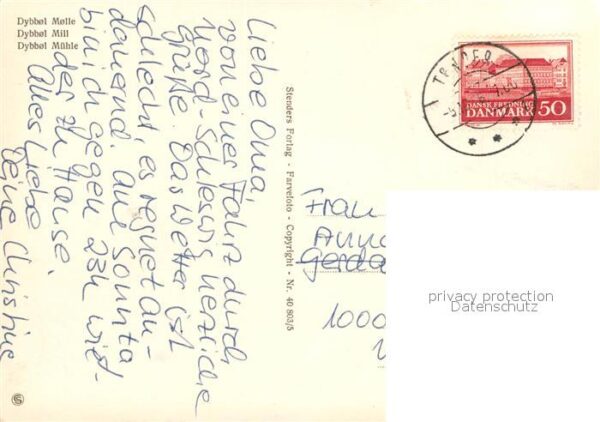 Dybbøl Mølle
Dybbøl Mill
Dybbøl Mühle
Liebe Oma,
von einer Fahrt durch
Nord-Schleswig herzliche
Grüße. Das Wetter ist
schlecht, es regnet an-
dauernd. Am Sonnta
bin ich gegen 23h wie-
der zu Hause.
Alles Liebe
Deine Christine
Stenders Forlag - Farvefoto - Copyright - Nr. 40 803/5
TØNDER
DANSK FREDNING
DANMARK 50
Frau
Anna
Gerda
1000
privacy protection
Datenschutz